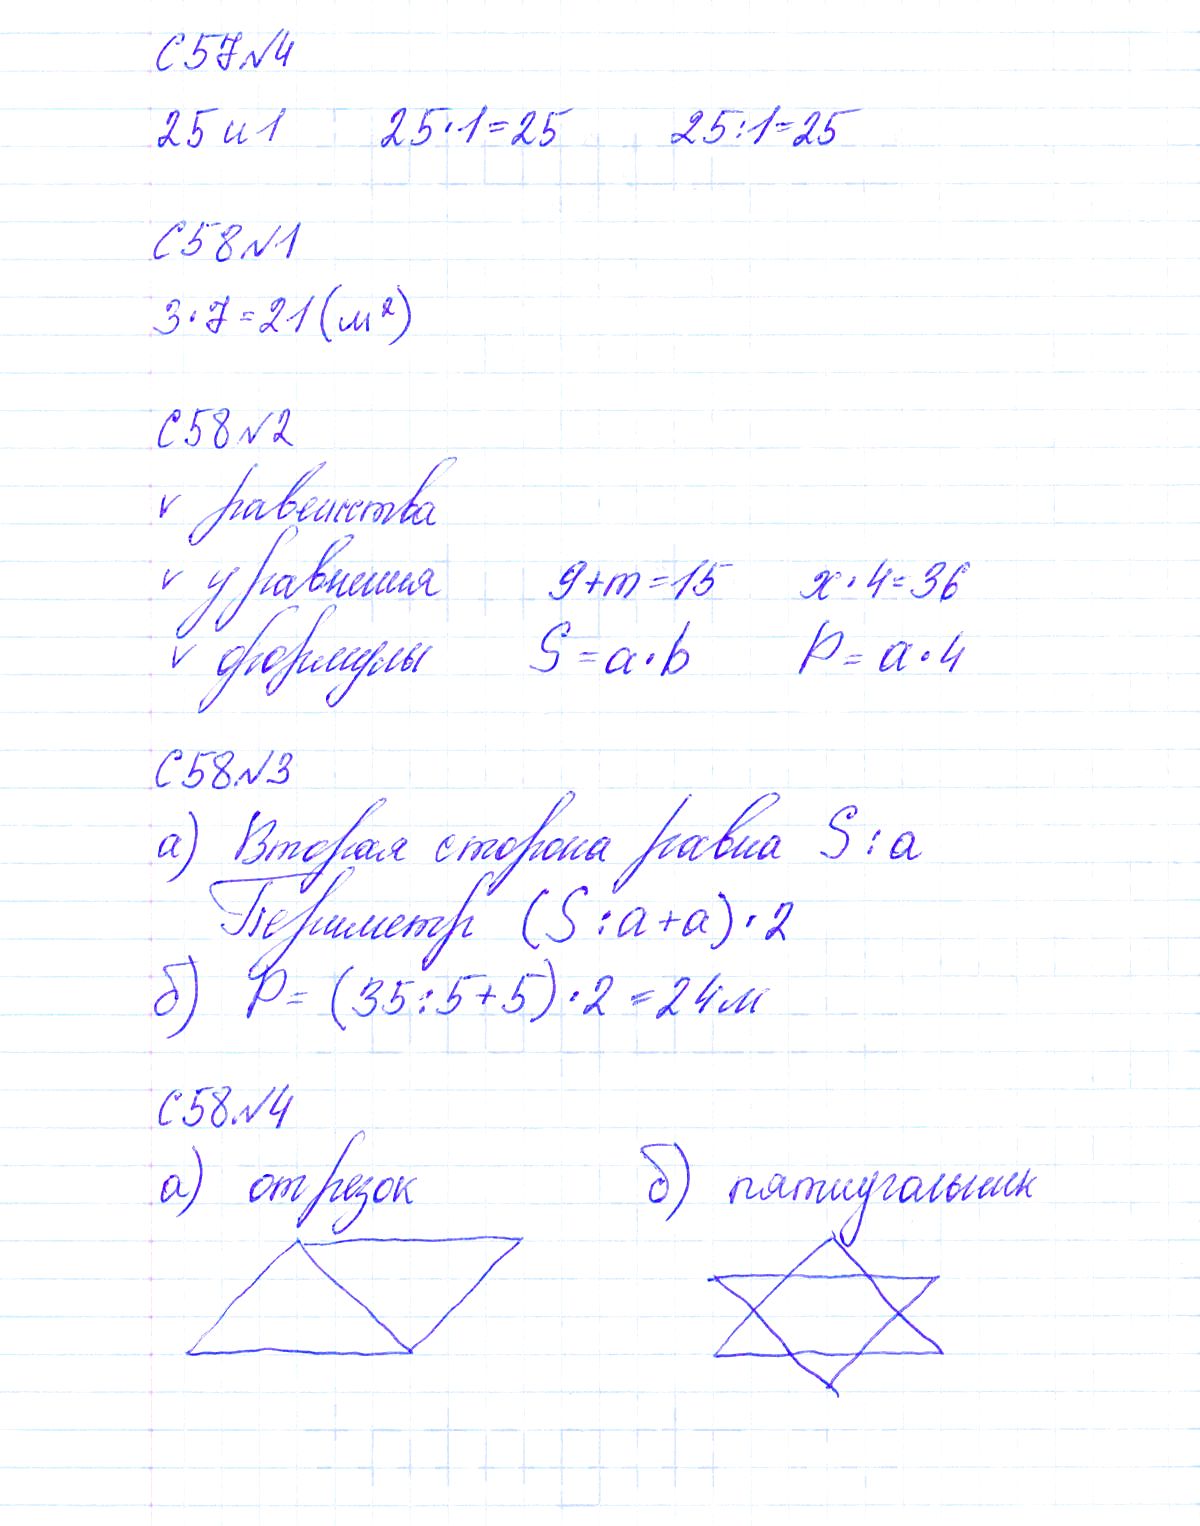 С57№4
25 и 1 25·1=25 25:1=25
С58№1
3·7=21(м²)
С58№2
v равенства
v уравнения 9+m=15 x·4=36
v формулы S=a·b P=a·4
С58№3
а) Вторая сторона равна S:a
Периметр (S:a+a)·2
б) P=(35:5+5)·2=24м
С58№4
а) отрезок б) пятиугольник